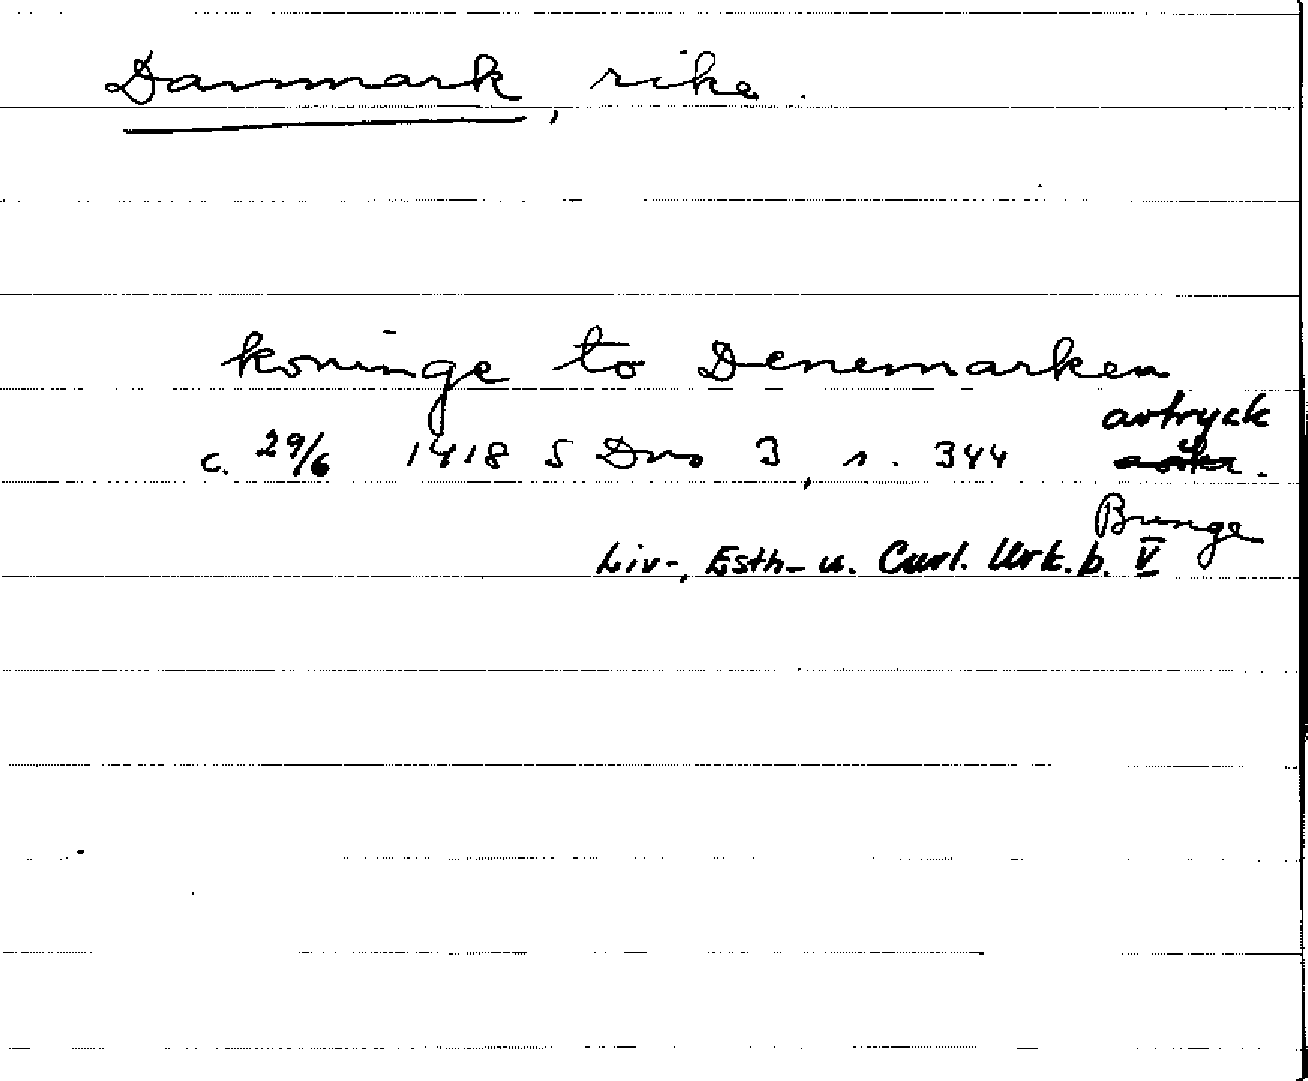 Danmark, rike.
koninge to Denemarken
c. 29/6 1418 S Dns 3, s. 344 avtryck
Bunge
Liv-, Esth- u. Curl. Urk. b. V